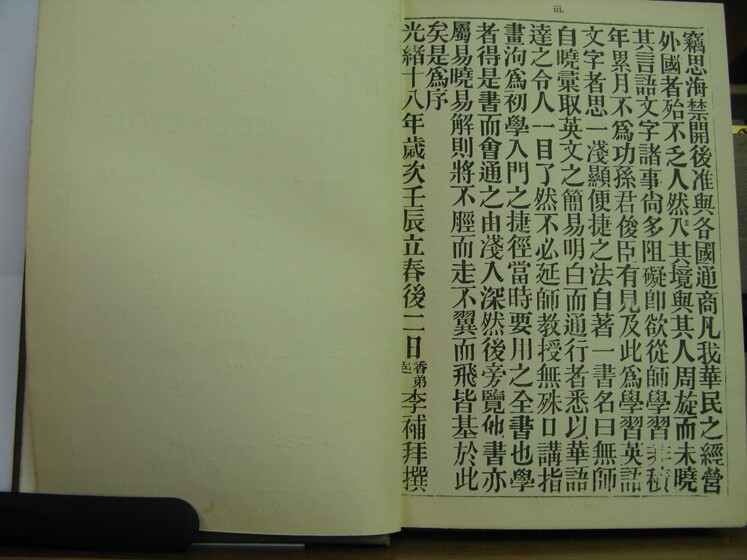 iii.
竊思海禁開後准與各國通商凡我華民之經營
外國者殆不乏人然入其境與其人周旋而未曉
其言語文字諸事尙多阻礙卽欲從師學習非積
年累月不爲功孫君俊臣有見及此爲學習英語
文字者思一淺顯便捷之法自著一書名曰無師
自曉彙取英文之簡易明白而通行者悉以華語
達之令人一目了然不必延師教授無殊口講指
畫洵爲初學入門之捷徑當時要用之全書也學
者得是書而會通之由淺入深然後旁覽他書亦
屬易曉易解則將不脛而走不翼而飛皆基於此
矣是爲序
光緒十八年歲次壬辰立春後二日香弟李補拜撰